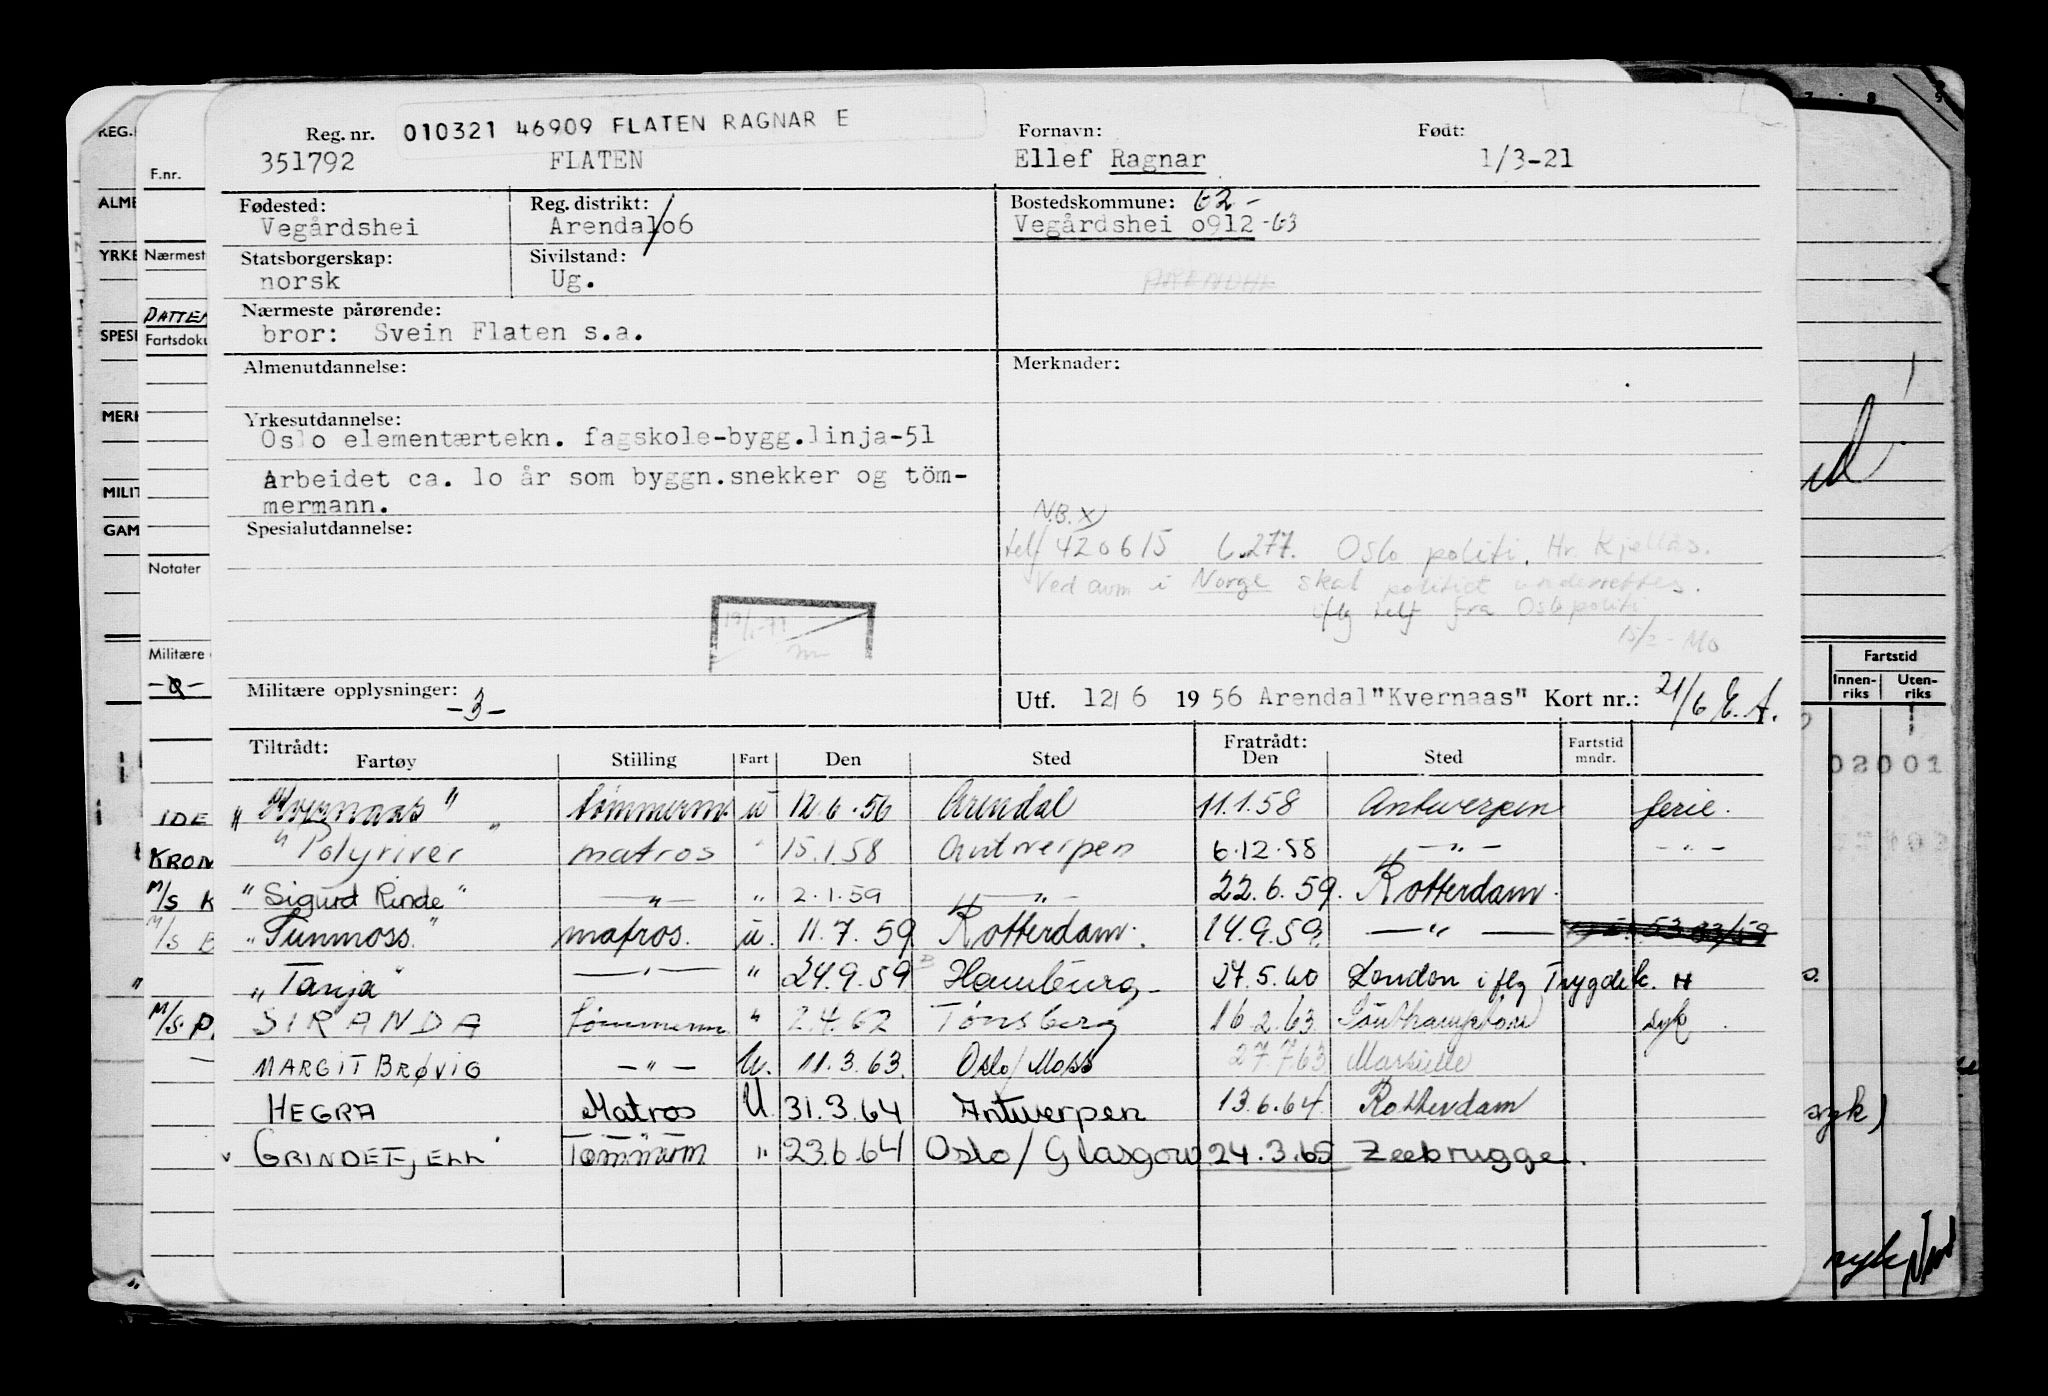 010321 46909 FLATEN RAGNAR E
Reg. nr. Fornavn: Født:
351792 FLATEN Ellef Ragnar 1/3-21
Fødested: Reg. distrikt: Bostedskommune: 62-
Vegårdshei Arendal/o6 Vegårdshei o912-63
Statsborgerskap: Sivilstand:
norsk Ug. ARENDAL
Nærmeste pårørende:
bror: Svein Flaten s.a.
Almenutdannelse: Merknader:
Yrkesutdannelse:
Oslo elementærtekn. fagskole-bygg.linja-51
Arbeidet ca. lo år som byggn.snekker og töm-
mermann.
Spesialutdannelse:
N.B. x)
telf 420615 l.277. Oslo politi. Hr. Kjellås.
Ved avm i Norge skal politiet underrettes.
iflg telf fra Oslo politi
15/2- Mo
Militære opplysninger: -3-
Utf. 12/6 1956 Arendal "Kvernaas" Kort nr.: 21/6 E.A.
Tiltrådt: Fratrådt:
Fartøy Stilling Fart Den Sted Den Sted Fartstid mndr.
"Kvernaas" tömmerm. u 12.6.56 Arendal 11.1.58 Antwerpen ferie.
"Polyriver" matros " 15.1.58 Antwerpen 6.12.58 —"— -"-
"Sigurd Rinde" —"— " 2.1.59 —"— 22.6.59. Rotterdam.
"Sunmoss." matros. u. 11.7.59 Rotterdam. 14.9.59. —"—
"Tanja" —"— " 24.9.59 Hamburg- 27.5.60 London iflg Trygdek. H
SIRANDA tømmerm " 2.4.62 Tønsberg 16.2.63 Southampton syk.
MARGIT BRØVIG —"— U. 11.3.63. Oslo/Moss 27.7.63 Marseille
HEGRA Matros U 31.3.64 Antwerpen 13.6.64 Rotterdam
GRINDEFJELL Tømmerm " 23.6.64 Oslo/Glasgow 24.3.65 Zeebrugge.
F.nr.
Nærmest
Fartsdoku
Notater
Militære
-0-
YRKE
SPESI
MILIT
GAM
IDE
KRON
M/S K
M/S B
M/S P
Fartstid
Innen-riks Uten-riks
02001
syk)
syk